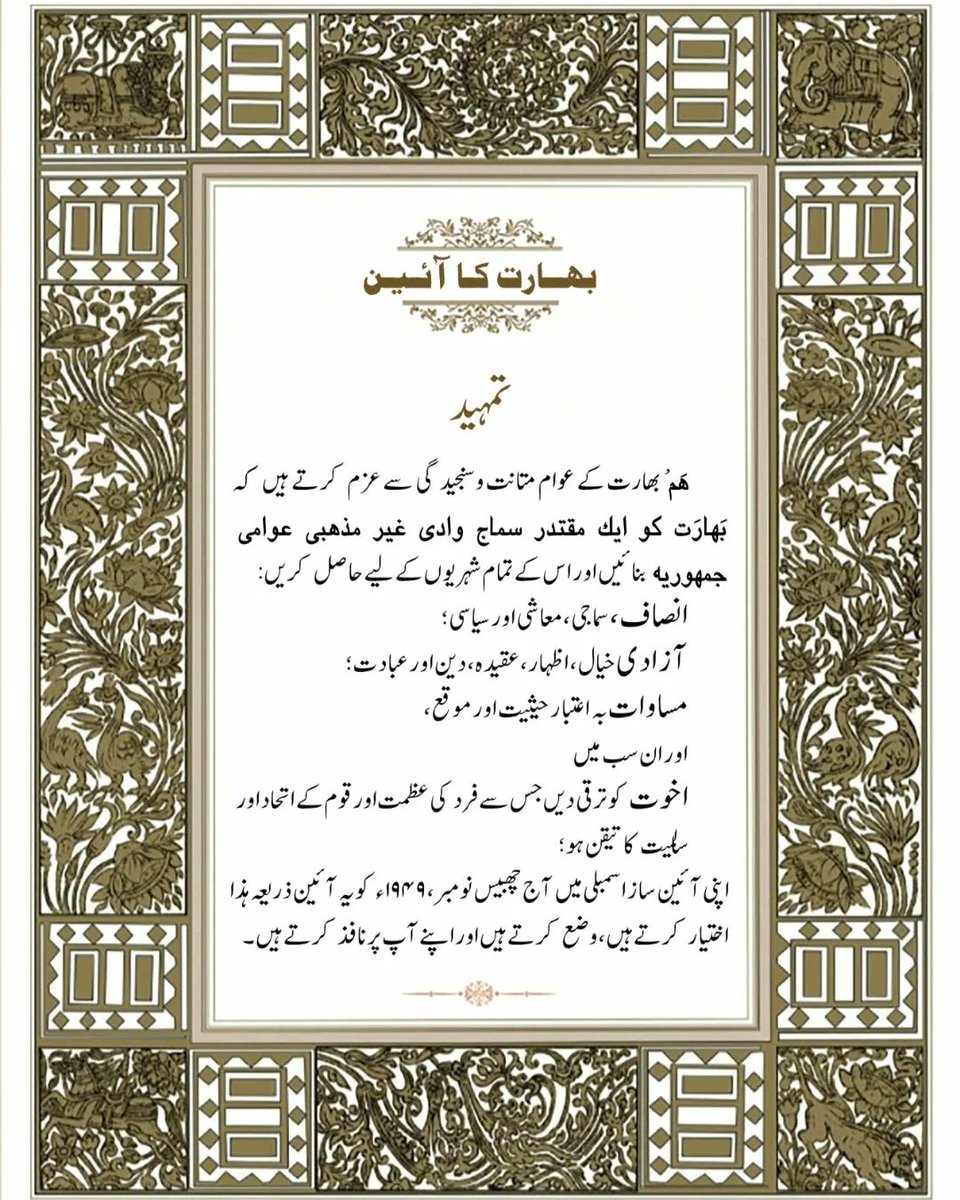 بھارت کا آئین
تمہید
ھَم بھارت کے عوام متانت و سنجیدگی سے عزم کرتے ہیں کہ
بَھارَت کو ایک مقتدر سماج وادی غیر مذھبی عوامی
جمہوریہ بنائیں اور اس کے تمام شہریوں کے لیے حاصل کریں:
انصاف، سماجی، معاشی اور سیاسی؛
آزادی خیال، اظہار، عقیدہ، دین اور عبادت؛
مساوات بہ اعتبار حیثیت اور موقع،
اور ان سب میں
اخوت کو ترقی دیں جس سے فرد کی عظمت اور قوم کے اتحاد اور
سالمیت کا تیقن ہو؛
اپنی آئین ساز اسمبلی میں آج چھبیس نومبر، ۱۹۴۹ء کو یہ آئین ذریعہ ہذا
اختیار کرتے ہیں، وضع کرتے ہیں اور اپنے آپ پر نافذ کرتے ہیں۔